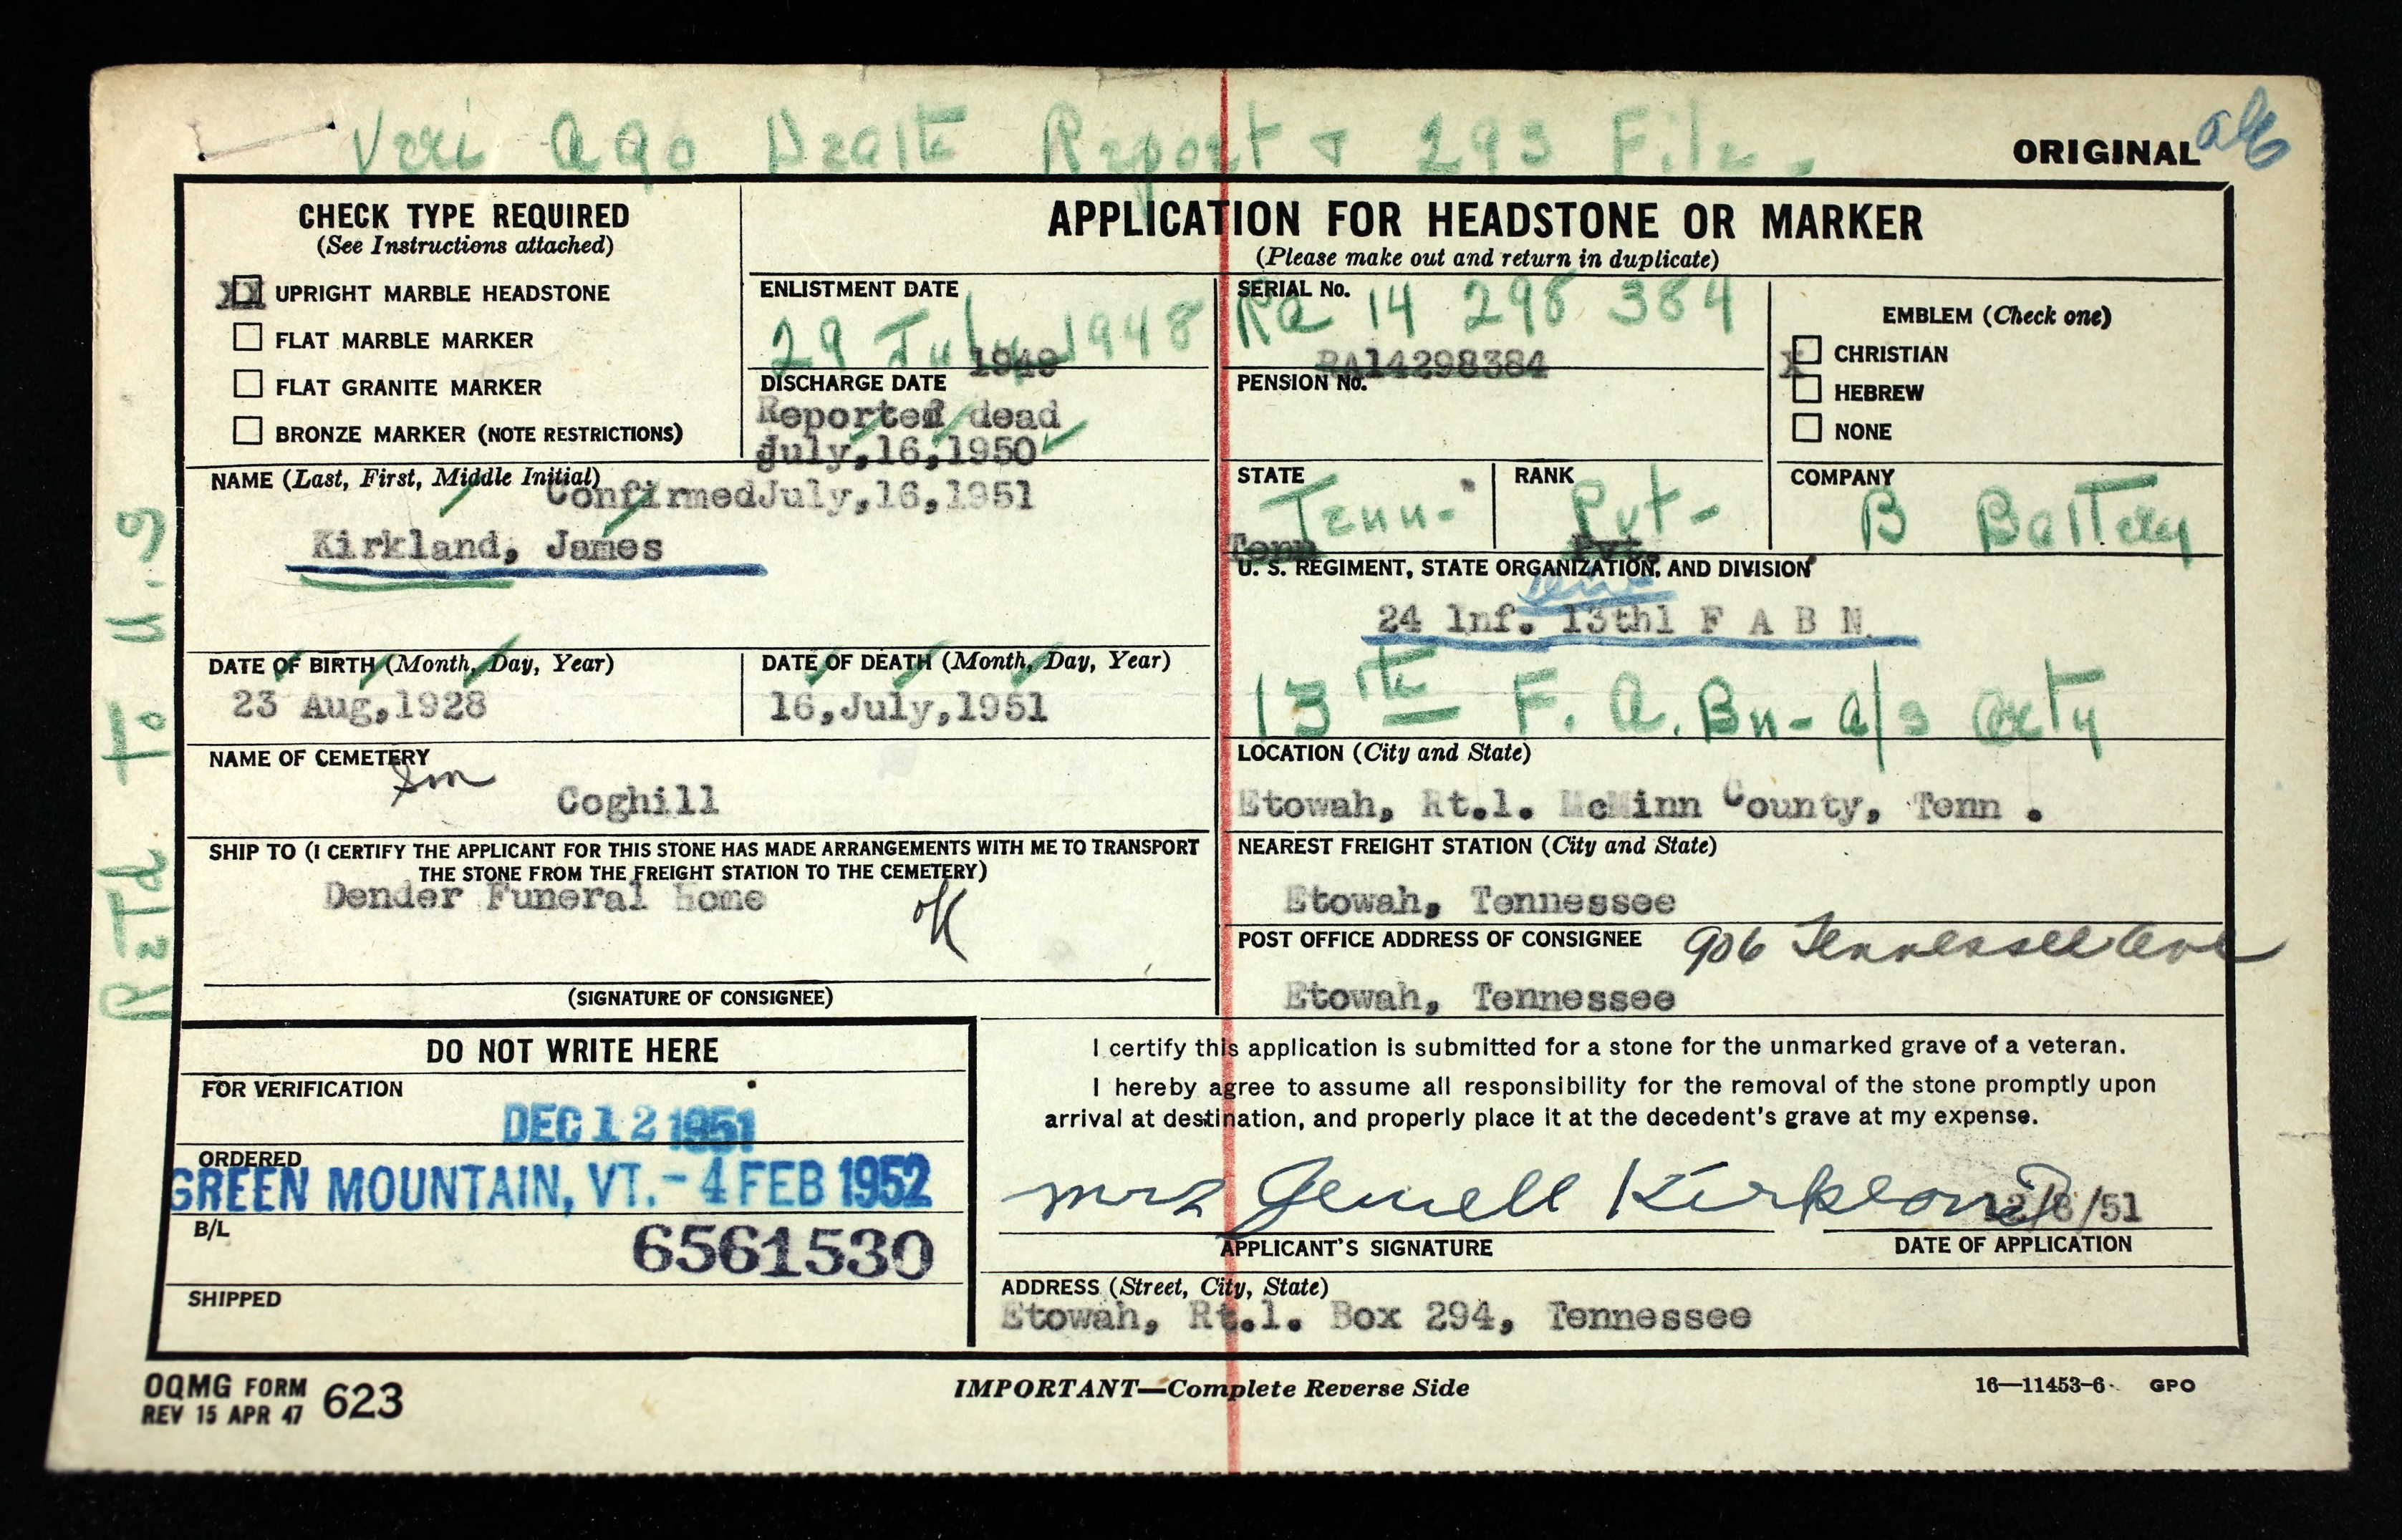 Veri Ago Death Report & 293 File.
ORIGINAL
CHECK TYPE REQUIRED
(See Instructions attached)
XX UPRIGHT MARBLE HEADSTONE
FLAT MARBLE MARKER
FLAT GRANITE MARKER
BRONZE MARKER (NOTE RESTRICTIONS)
APPLICATION FOR HEADSTONE OR MARKER
(Please make out and return in duplicate)
ENLISTMENT DATE
29 July 1948
1949
DISCHARGE DATE
Reported dead
July,16,1950
SERIAL No.
Ra 14 298 384
RA14298384
PENSION No.
EMBLEM (Check one)
X CHRISTIAN
HEBREW
NONE
NAME (Last, First, Middle Initial)
ConfirmedJuly,16,1951
Kirkland, James
STATE
Tenn-
Tenn
RANK
Pvt-
Pvt.
COMPANY
B Battery
U. S. REGIMENT, STATE ORGANIZATION, AND DIVISION
24 Inf. 13th1 F A B N
13th F. A. Bn- a/s Arty
DATE OF BIRTH (Month, Day, Year)
23 Aug,1928
DATE OF DEATH (Month, Day, Year)
16,July,1951
NAME OF CEMETERY
Coghill
LOCATION (City and State)
Etowah, Rt.1. McMinn County, Tenn .
SHIP TO (I CERTIFY THE APPLICANT FOR THIS STONE HAS MADE ARRANGEMENTS WITH ME TO TRANSPORT
THE STONE FROM THE FREIGHT STATION TO THE CEMETERY)
Dender Funeral Home
OK
(SIGNATURE OF CONSIGNEE)
NEAREST FREIGHT STATION (City and State)
Etowah, Tennessee
POST OFFICE ADDRESS OF CONSIGNEE
906 Tennessee Ave
Etowah, Tennessee
RETd To U.S
DO NOT WRITE HERE
FOR VERIFICATION
DEC 12 1951
ORDERED
GREEN MOUNTAIN, VT. - 4 FEB 1952
B/L
6561530
SHIPPED
I certify this application is submitted for a stone for the unmarked grave of a veteran.
I hereby agree to assume all responsibility for the removal of the stone promptly upon
arrival at destination, and properly place it at the decedent's grave at my expense.
Mrs Jewell Kirkland
12/8/51
APPLICANT'S SIGNATURE
DATE OF APPLICATION
ADDRESS (Street, City, State)
Etowah, Rt.1. Box 294, Tennessee
OQMG FORM 623
REV 15 APR 47
IMPORTANT—Complete Reverse Side
16—11453-6 GPO